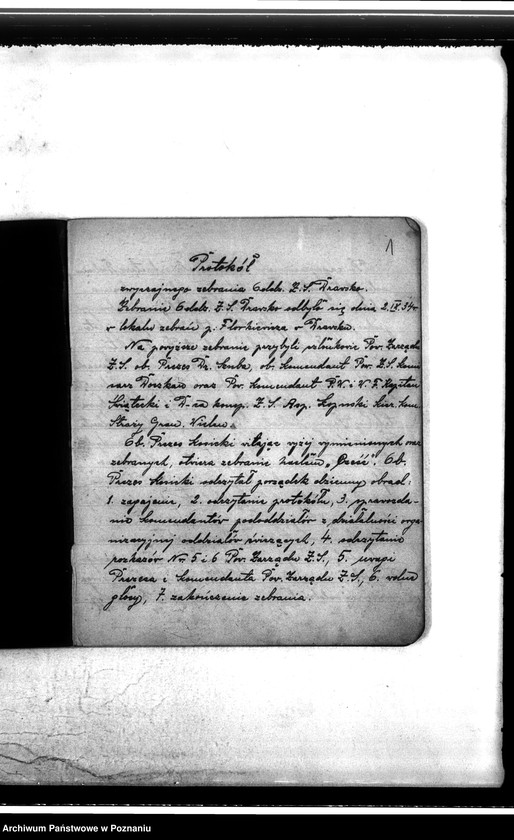 1
Protokół
zwyczajnego zebrania Oddz. Z.S. Drawsko.
Zebranie Oddz. Z.S. Drawsko odbyło się dnia 2.IX.34r
w lokalu zebrań p. Florkiewicza w Drawsku.
Na powyższe zebranie przybyli członkowie Pow. Zarządu
Z.S. ob. Prezes Dr. ob. Komendant Pow. Z.S. Komi
sarz oraz Pow. Komendant P.W. i W.F. Kapitan
Świątecki i D-ca komp. Z.S. Asp. Kier. Kom
Straży Gran. Wieleń.
Ob. Prezes Konicki witając wyżej wymienionych oraz
zebranych, otwiera zebranie hasłem „Cześć”. Ob.
Prezes Konicki odczytał porządek dzienny obrad:
1. zagajenie, 2. odczytanie protokółu, 3. sprawozda-
nie komendantów pododdziałów z działalności orga
nizacyjnej oddziałów ćwiczących, 4. odczytanie
rozkazów Nr 5 i 6 Pow. Zarządu Z.S., 5. uwagi
Prezesa i Komendanta Pow. Zarządu Z.S., 6. wolne
głosy, 7. zakończenie zebrania.
Archiwum Państwowe w Poznaniu